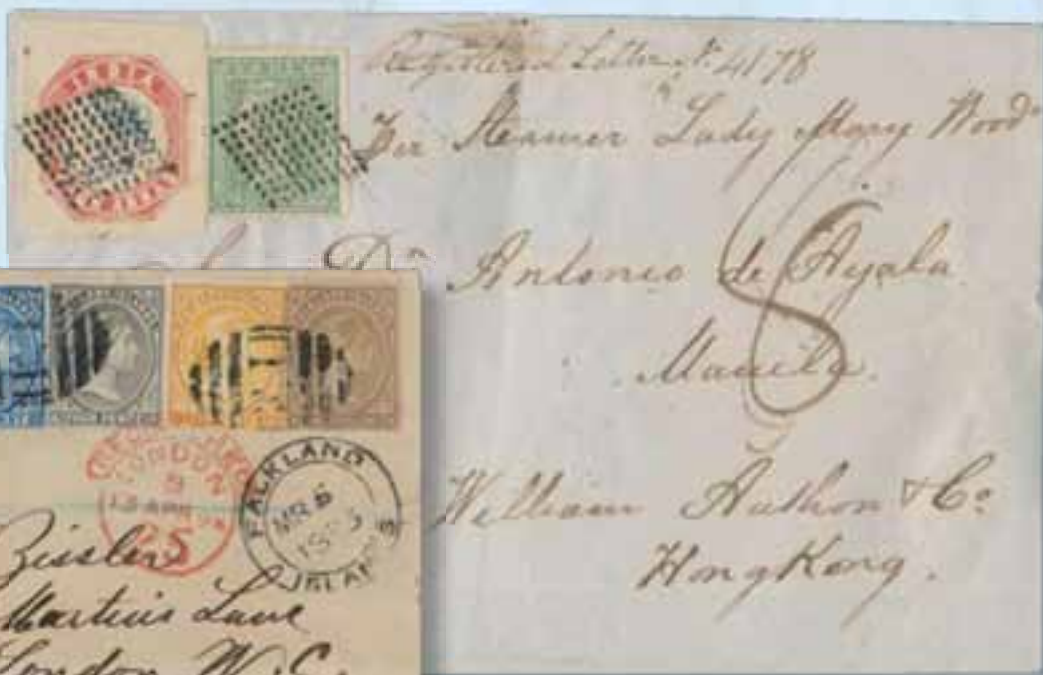 Registered Letter No. 4178
Per Steamer Lady Mary Wood
8
Dn Antonio de Ayala
Manila.
William Anthon & Co.
HongKong.
LONDON
FALKLAND
ISLANDS
MR 6
Zeissler
Martins Lane
London W.C.